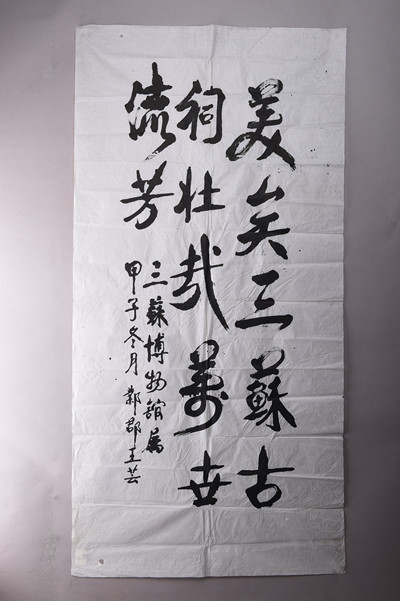 美矣三蘇古
祠壮哉萬世
流芳
三蘇博物館属
甲子冬月新郡王芸